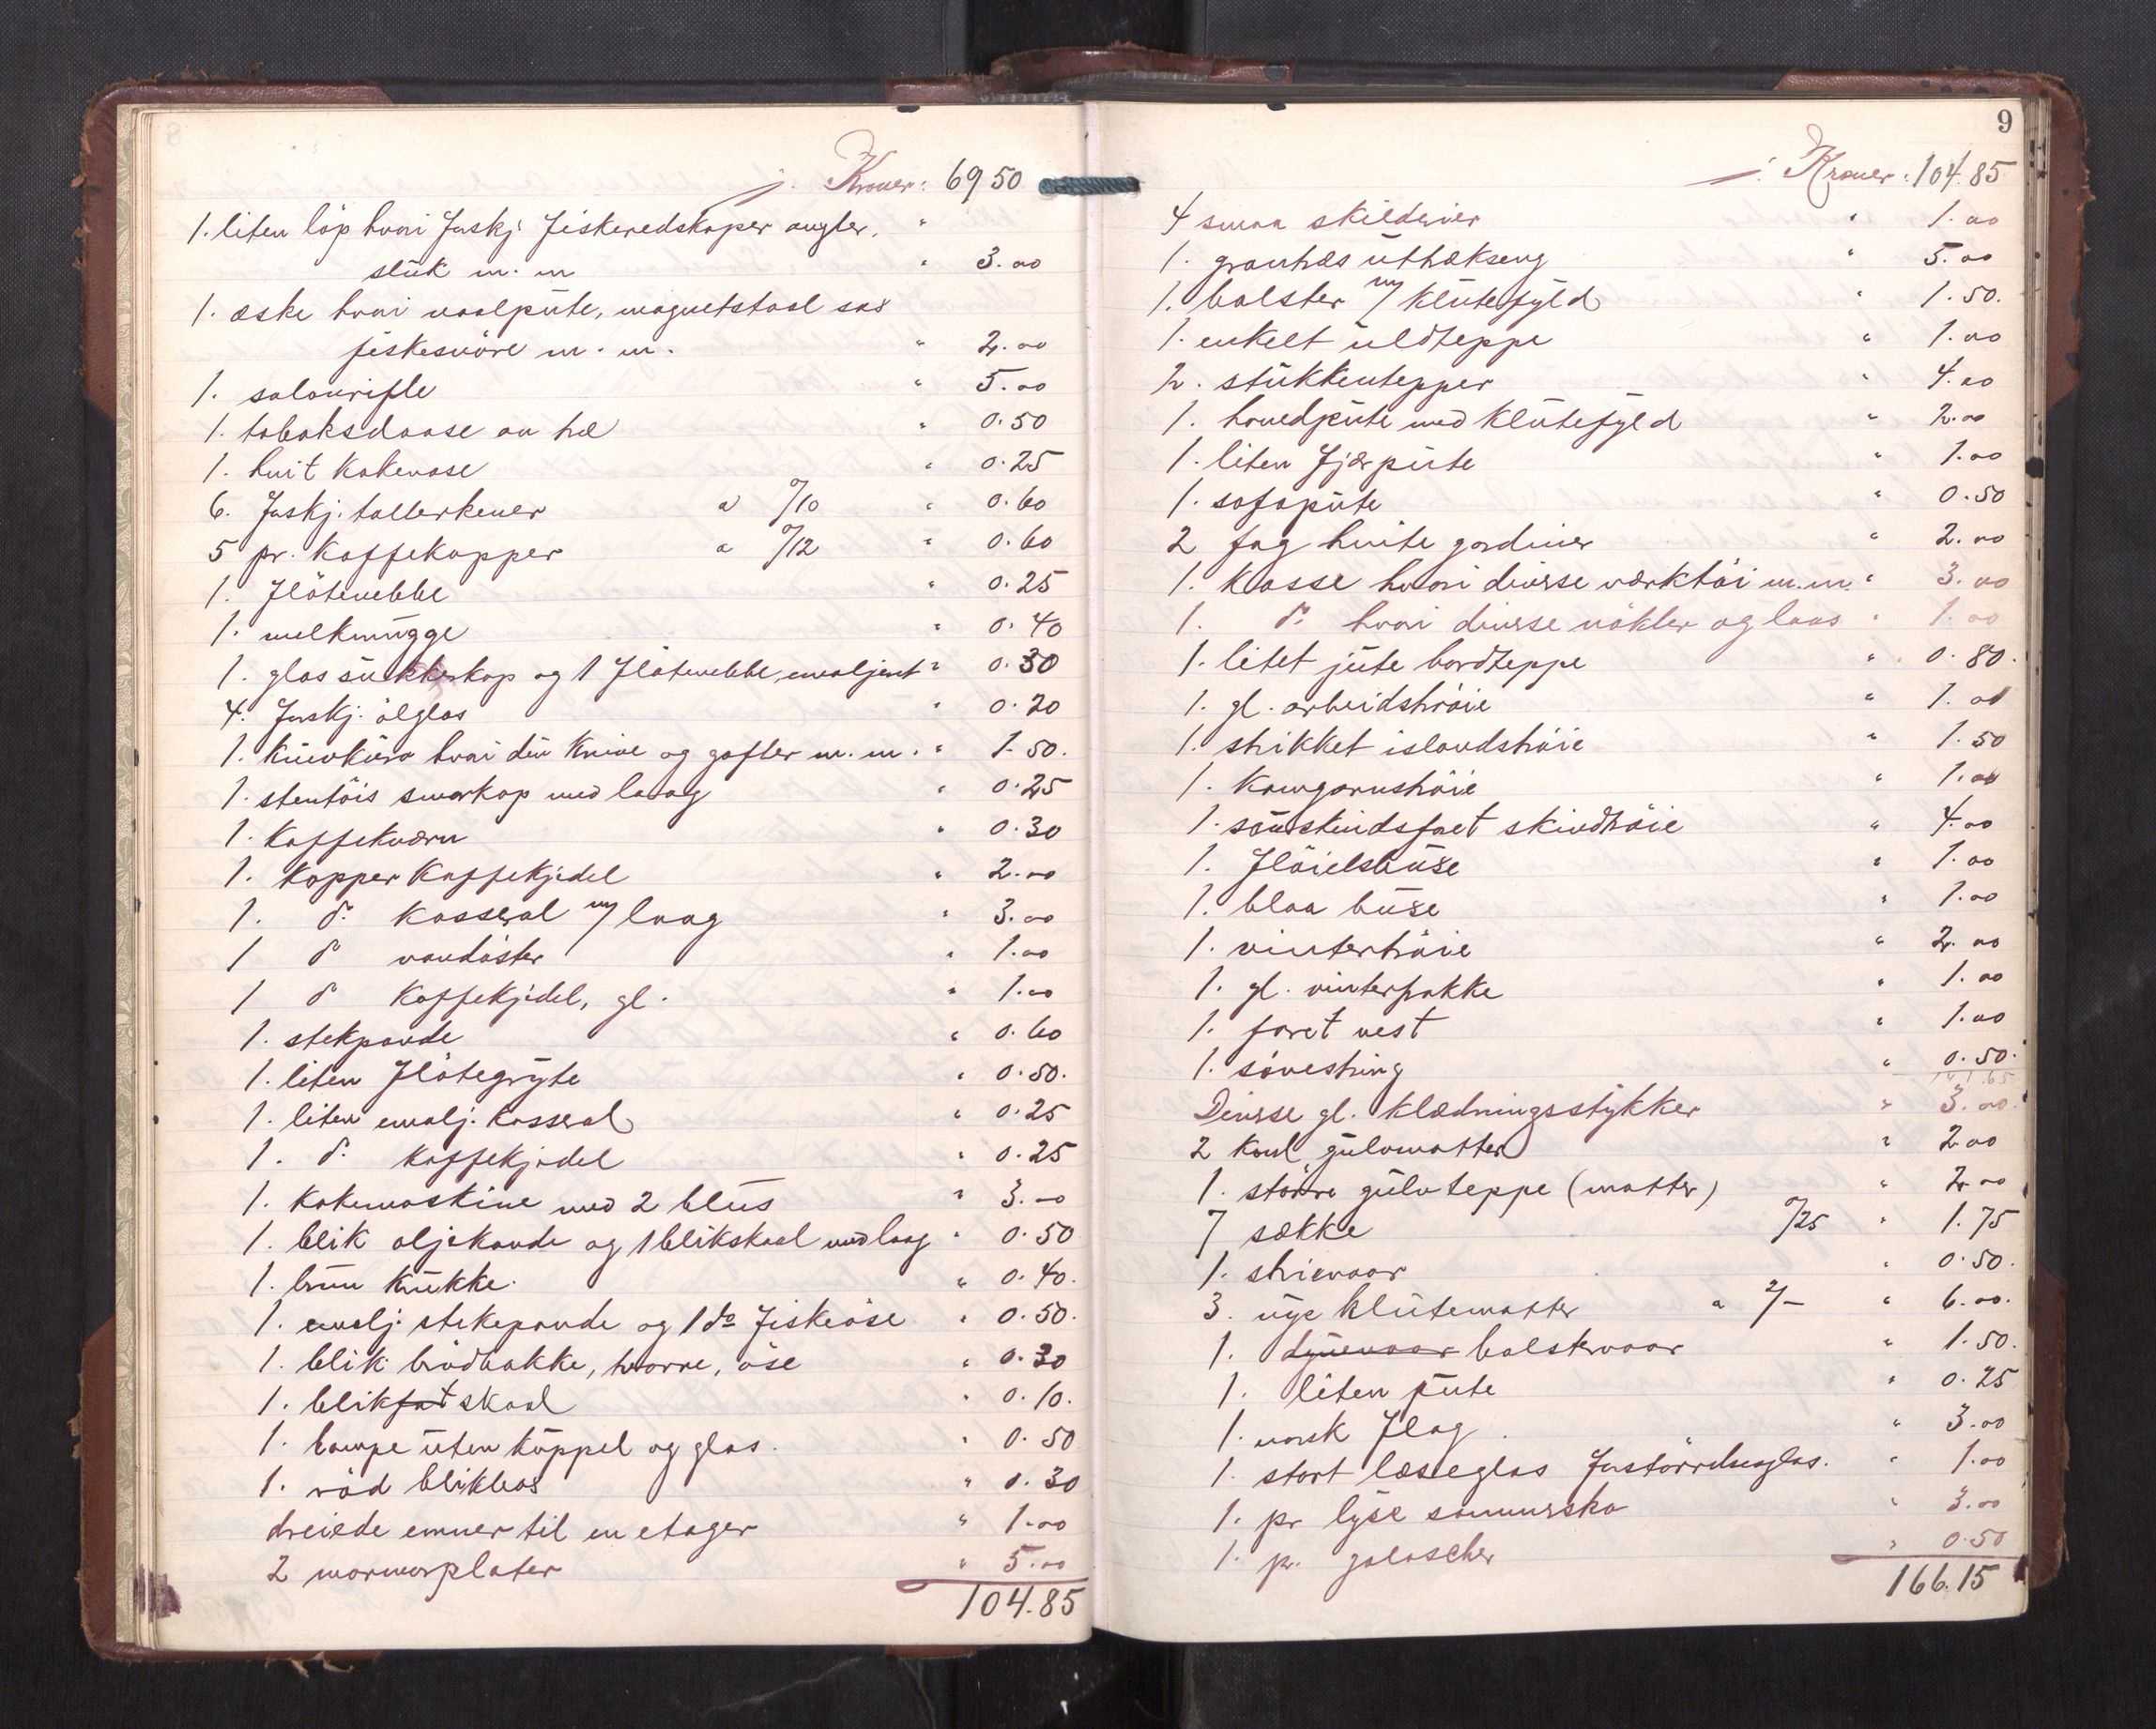 j. Kroner: 69 50
1. liten löp hvori forskj. fiskeredskaper angler, "
sluk m. m " 3.00
1. æske hvori naalpute, magnetstaal sax
fiskesnöre m. m. " 2.00
1. salonrifle " 5.00
1. tobaksdaase av træ " 0.50
1. hvit kakevase " 0.25
6. forskj. tallerkener a º/10 " 0.60
5 pr. kaffekopper a º/12 " 0.60
1. flötenebbe " 0.25
1. melkemugge " 0.40
1. glas sukkerkop og 1 flötenebbe, emaljert " 0.30
4. forskj. ölglas " 0.20
1. knivkurv hvori div knive og gafler m. m. " 1.50.
1. stentöis smörkop med laag " 0.25
1. kaffekværn " 0.30
1. kopper kaffekjedel " 2.00
1. dº kasserol m/ laag " 3.00
1 dº vandöster " 1.00
1 dº kaffekjedel, gl. " 1.00
1. stekpande " 0.60
1. liten flötegryte " 0.50.
1. liten emalj. kasserol " 0.25
1. dº kaffekjedel " 0.25
1. kokemaskine med 2 blus " 3.00
1. blik oljekande og 1 blikskaal med laag " 0.50
1. brun krukke. " 0.40.
1. emalj. stekepande og 1 do fiskeöse " 0.50.
1. blik brödbakke, öse " 0.30
1. blikfat skaal " 0.10.
1. lampe uten kuppel og glas. " 0.50
1. röd blikboks " 0.30
dreiede emner til en etager " 1.00
2 marmorplater " 5.00
104.85
9
j. Kroner: 104.85
4 smaa skilderier " 1.00
1. grantræs uttrækseng " 5.00
1. bolster m/ klutefyld " 1.50.
1. enkelt uldteppe " 1.00
2. stukkentepper " 4.00
1. hovedpute med klutefyld " 2.00
1. liten fjærpute " 1.00
1. sofapute " 0.50
2 fag hvite gardiner " 2.00
1. kasse hvori diverse værktöi m.m. " 3.00
1. dº hvori diverse nökler og laas " 1.00
1. litet jute bordteppe " 0.80.
1. gl. arbeidströie " 1.00
1. strikket islandströie " 1.50
1. kamgarnströie " 1.00
1. saueskindsforet skindtröie " 4.00
1. flöielsbukse " 1.00
1. blaa bukse " 1.00
1. vintertröie " 2.00
1. gl. vinterfrakke " 1.00
1. foret vest " 1.00
1. sövestring " 0.50.
141.65
Diverse gl. klædningsstykker " 3.00.
2 gulvmatter " 2.00
1. större gulvteppe (matter) " 2.00
7 sække º/25 " 1.75
1. strievaar " 0.50.
3. nye klutematter a 2/– " 6.00.
1. dynevaar bolstervaar " 1.50.
1. liten pute " 0.25
1. norsk flag. " 3.00
1. stort læseglas forstörrelsesglas. " 1.00
1. pr lyse sommersko " 3.00
1. pr. galoscher " 0.50
166.15